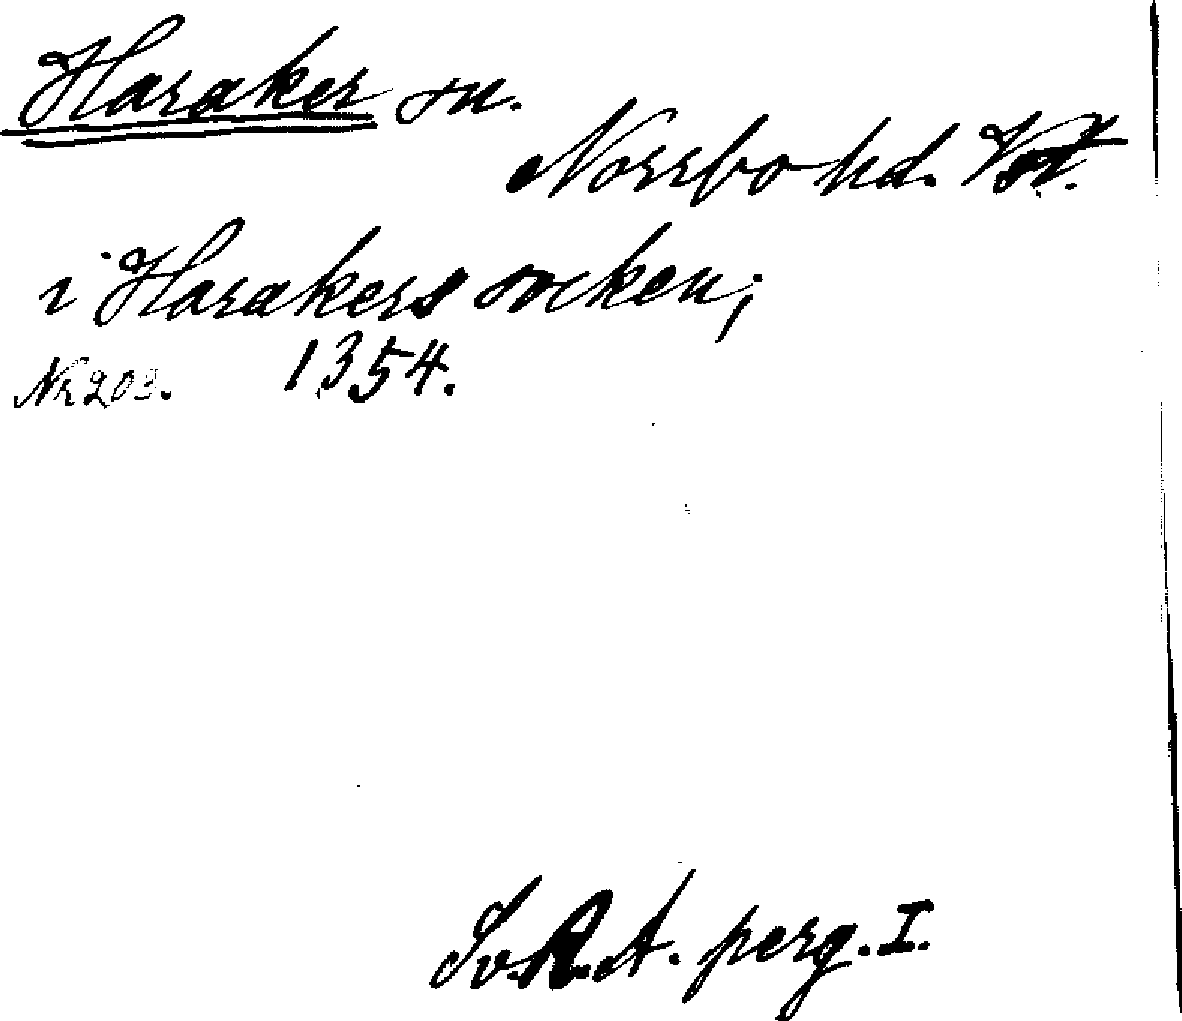 Haraker sn.
Norrbo hd. Vstm.
i Harakers socken;
Nr 203. 1354.
Sv. R. A. perg. I.